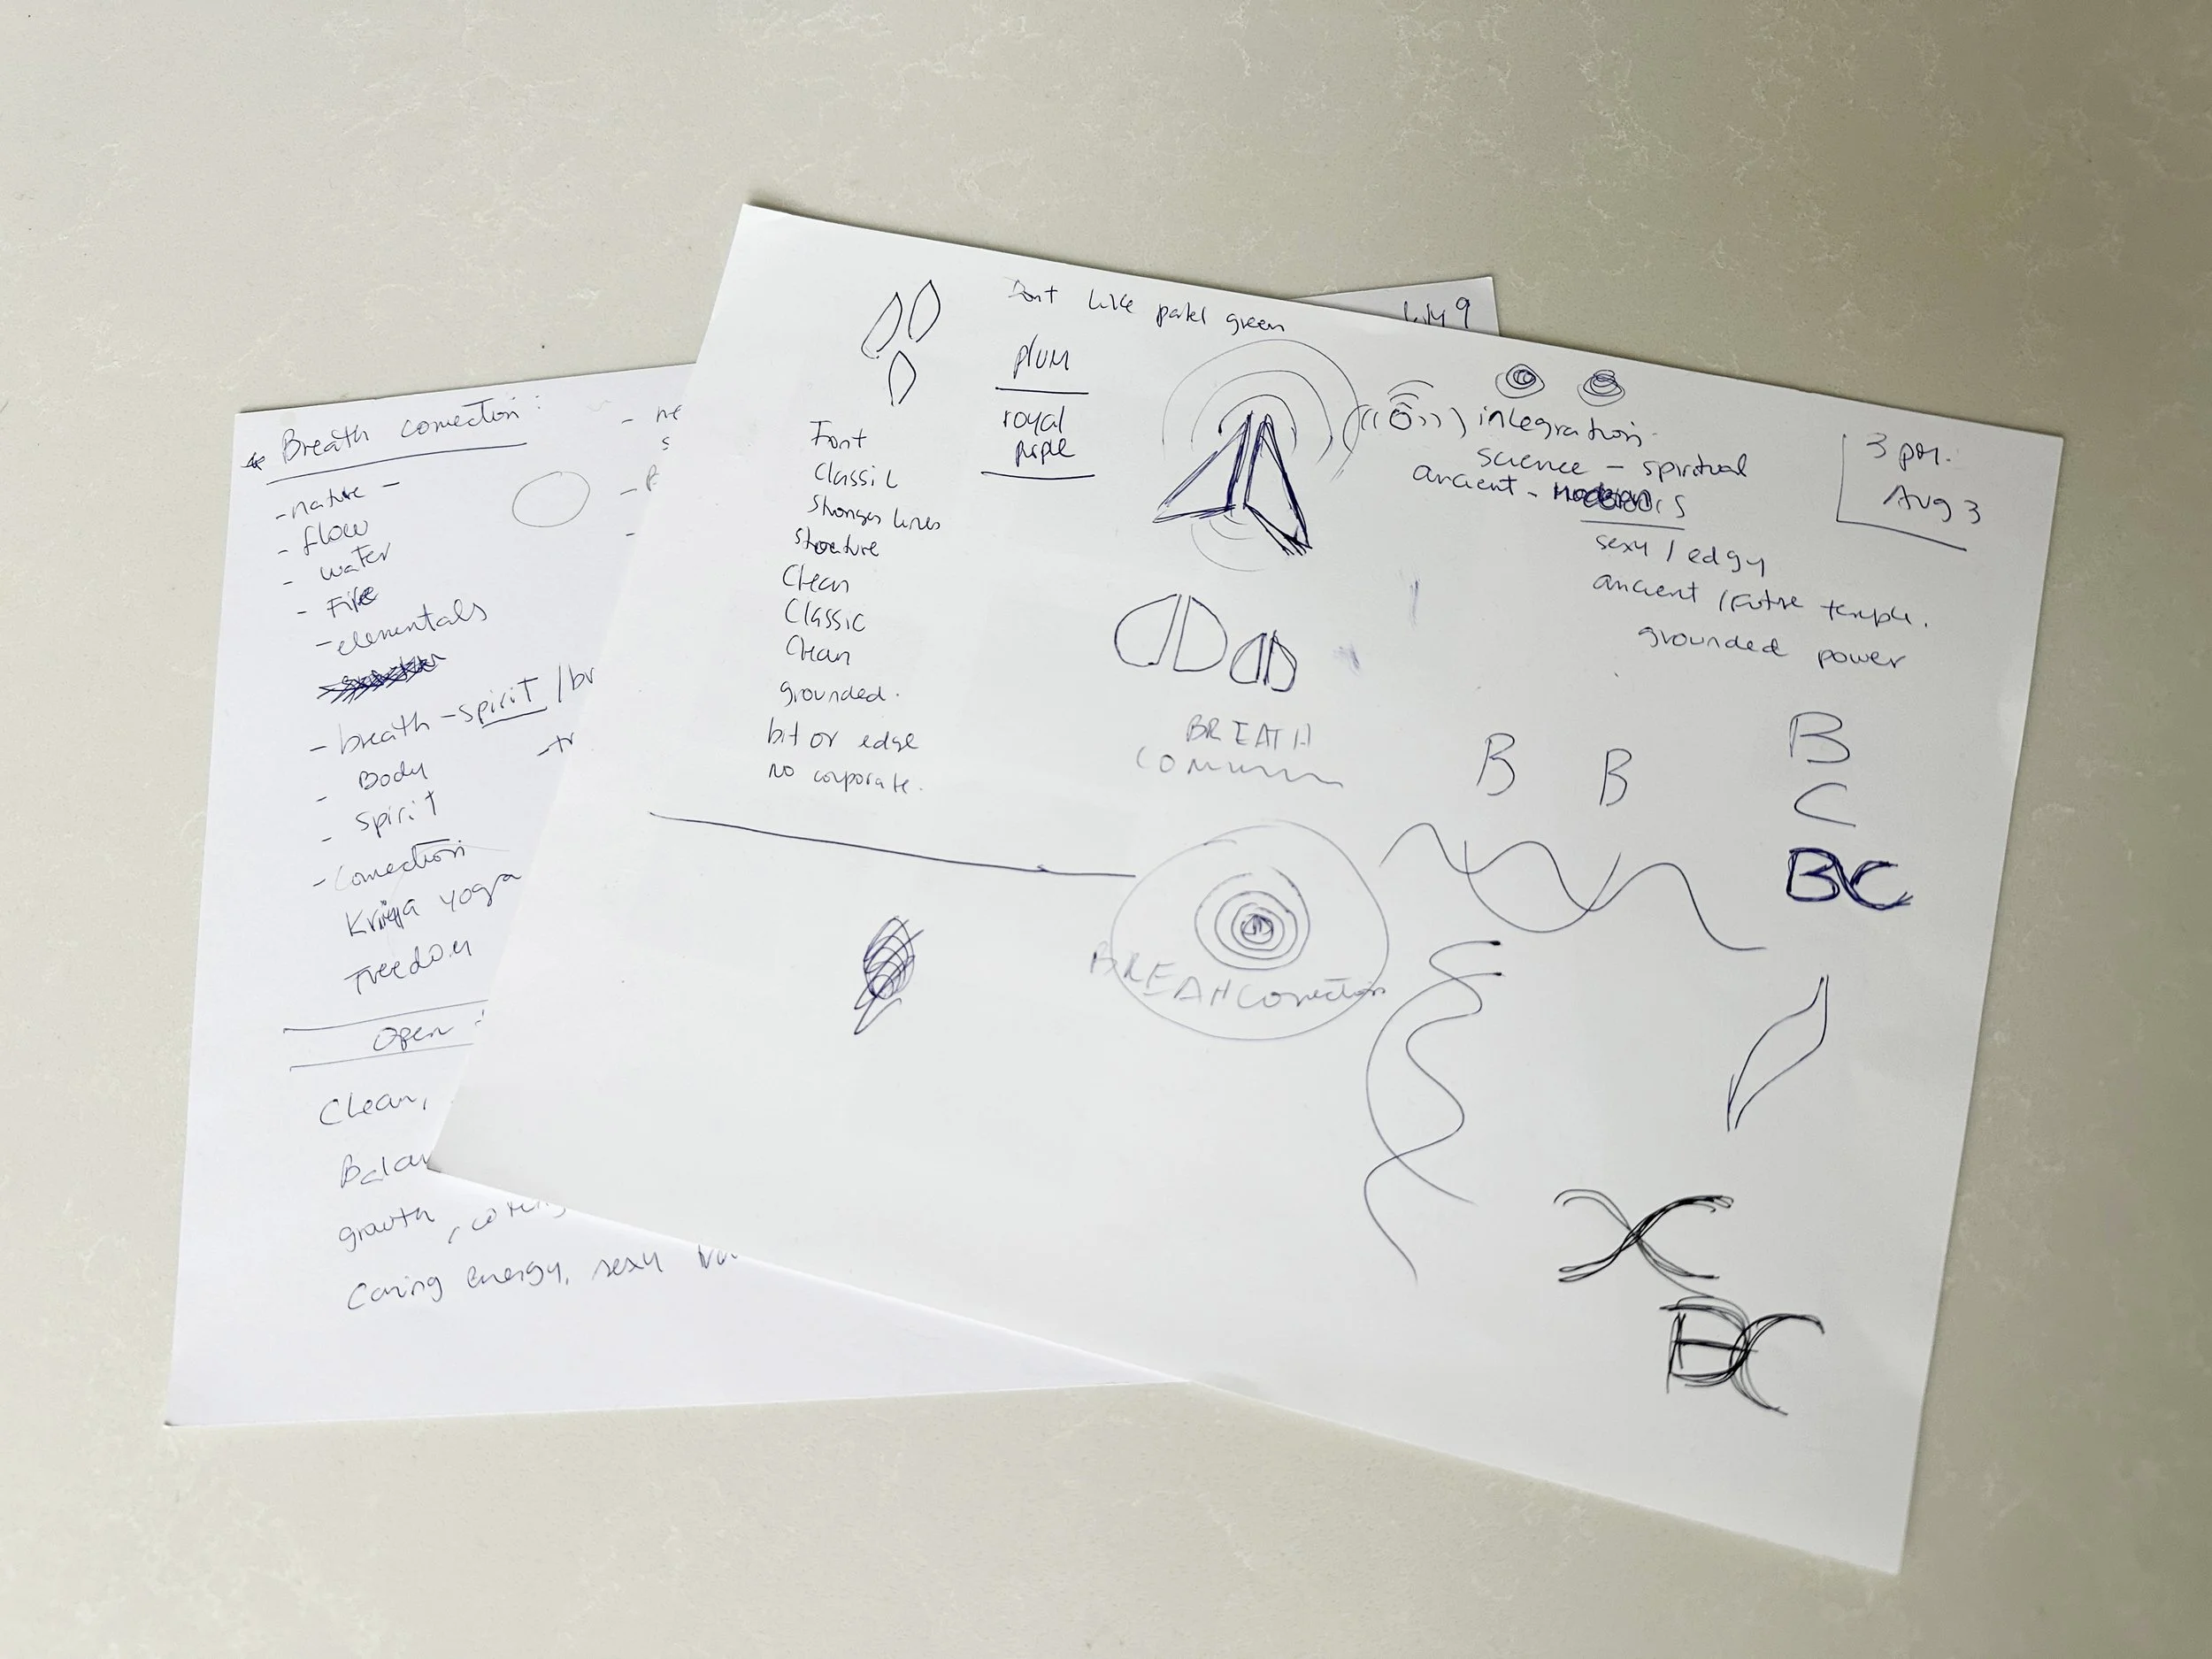 Breath connection:
- nature -
- flow
- water
- Fire
- elementals
- breath - spirit / br
- Body
- Spirit
- Connection
Kriya yoga
Freedom
Open
Clean,
Balan
growth,
Caring energy, sexy
Dont like patel green
plum
royal
purple
Font
Classic
Stronger lines
Structure
Clean
Classic
Clean
grounded.
bit or edge
no corporate.
integration.
science - spiritual
ancient -
sexy / edgy
ancient / Future temple.
grounded power
3 pm.
Aug 3
BREATH
B B
B
C
BC
BREAH Conection
BC